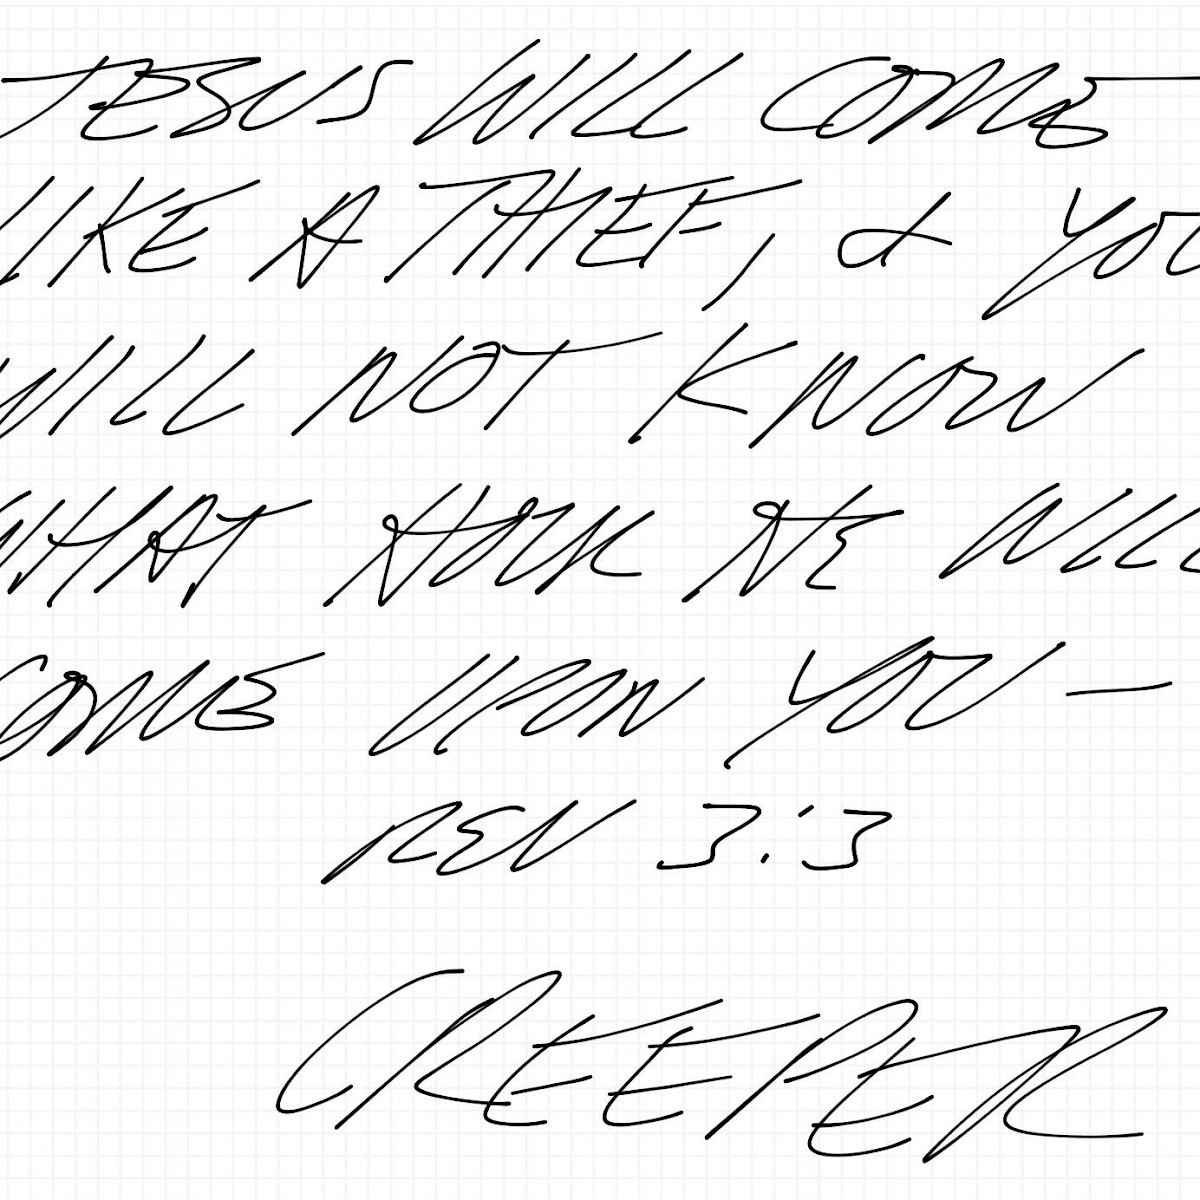 JESUS WILL COME
LIKE A THIEF, & YOU
WILL NOT KNOW
WHAT HOUR HE WILL
COME UPON YOU —
REV 3:3
CREEPER